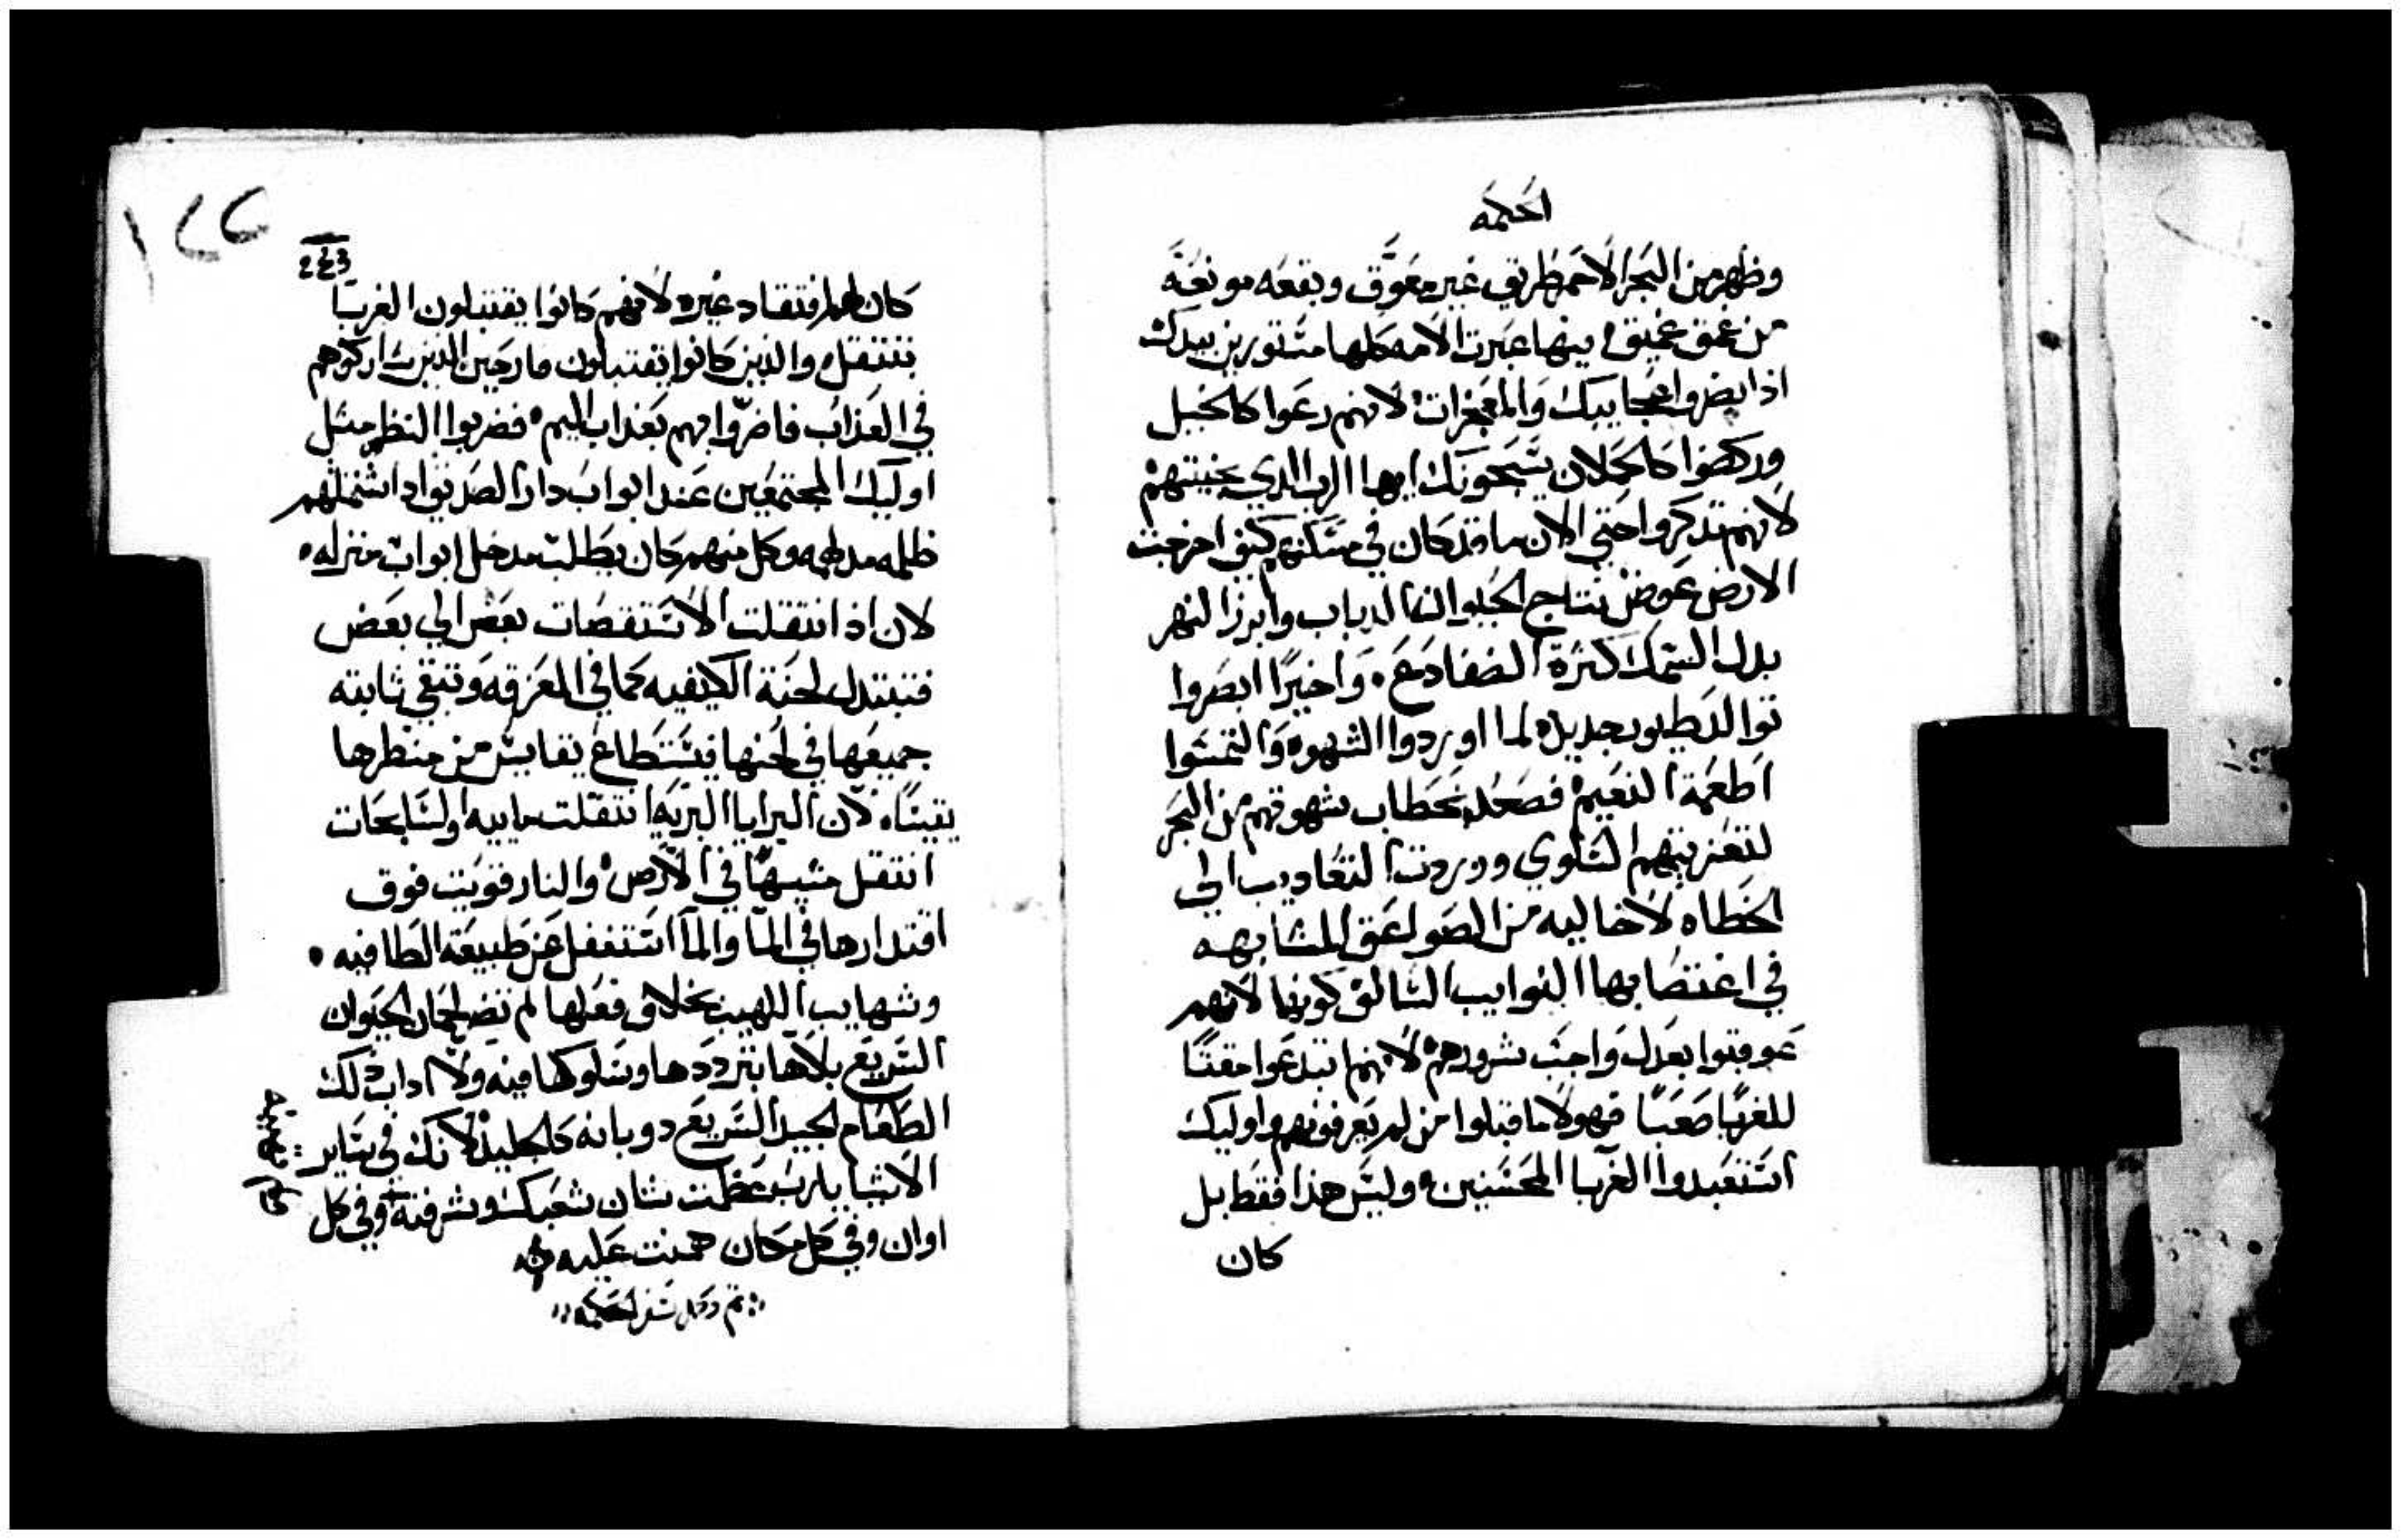 الحكمه
وظهر من البحر الاحمر طريق غير معوَّق وبقعه مونعَة
من عمق عميق وبينها عبرت الامه كلها متسورين بيدك
اذ ابصروا عجايبك والمعجزات لانهم رعوا كالخيل
وركضوا كالحملان يسبحونك ايها الرب الذي نجيتهم
لانهم تذكروا حتي الان ما قد كان في مسكنهم كيف اخرجت
الارض عوض نتاج الحيوانا الدباب وابرز النهر
بدل السمك كثرة الضفادع • واخيرًا ابصروا
توالد طيور جديده لما اوردوا الشهوه والتمسوا
اطعمة النعيم فصعد بخطاب شهوتهم من البحر
لتعزيتهم السلوي ووردت التعاديب الي
الخطاه لا خاليه من الصواعق المشابهه
في اغتصابها النوايب السالف كونها لانهم
عوقبوا بعدل واجب شرورهم لانهم ابتدعوا مقتًا
للغربا صعبًا فهولا ما قبلوا من لم يعرفونهم واوليك
استعبدوا الغربا المحسنين وليس هذا فقط بل
كان
١٢٢
243
كان لهم افتقاد غيره لانهم كانوا يقتبلون الغربا
بتثقل والذين كانوا يقتبلون فارحين الذين شاركوهم
في العذاب فاضرّوا بهم بعذاب اليم • فضربوا النظر مثل
اوليك المجتمعين عند ابواب دار الصديق اذ اشتملهم
ظلمه مدلهمه وكل منهم كان يطلب مدخل ابواب منزله •
لان اذ انتقلت الاستقصات بعض الي بعض
فتبتدل لحنة الكيفيه كما في المعزقه وتبقي ثابته
جميعها في لحنها فيستطاع يقايس من منظرها
يقينًا • لان البرايا البريه انتقلت ماييه والسابحات
انتقل مشيها في الارض والنار قويت فوق
اقتدارها في الما والما استغفل عن طبيعته الطافيه •
وشهايب اللهيب بخلاف فعلها لم تضر لحمان الحيوان
السريع بلاها بترددها وسلوكها فيه ولا اداب ذلك
الطعام الجيد السريع دوبانه كالجليد لانك في ساير
الاشيا يا رب عظمت شان شعبك وشرفته وفي كل
اوان وفي كل مكان همنت عليه
تم وكمل سفر الحكمه